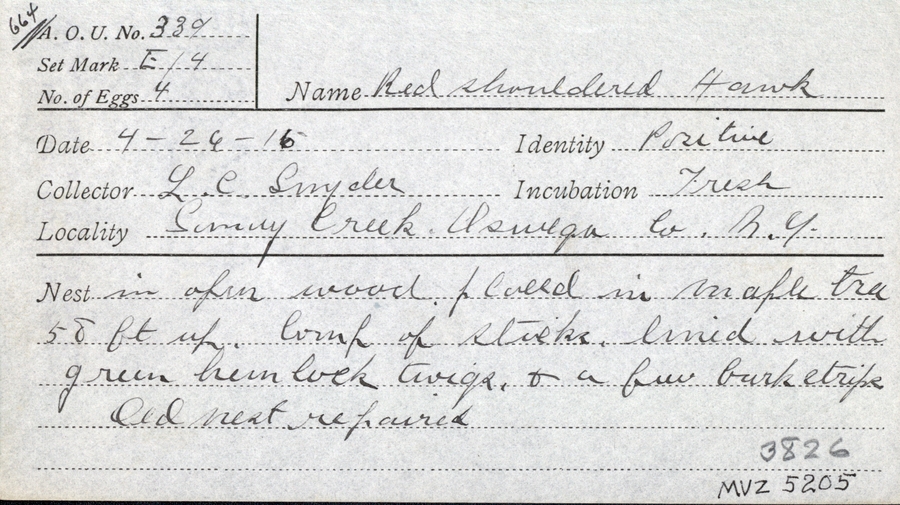 664
A. O. U. No. 339
Set Mark E/4
No. of Eggs 4
Name Red shouldered Hawk
Date 4-26-16
Identity Positive
Collector L. C. Snyder
Incubation Fresh
Locality Creek. Oswego Co. N.Y.
Nest in open wood. placed in maple tree
58 ft up. Comp of sticks. lined with
green hemlock twigs. & a few bark strips
Old nest repaired
3826
MVZ 5205